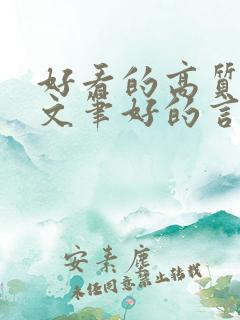 好看的高质
文笔好的言
安素尘
未经同意禁止转载